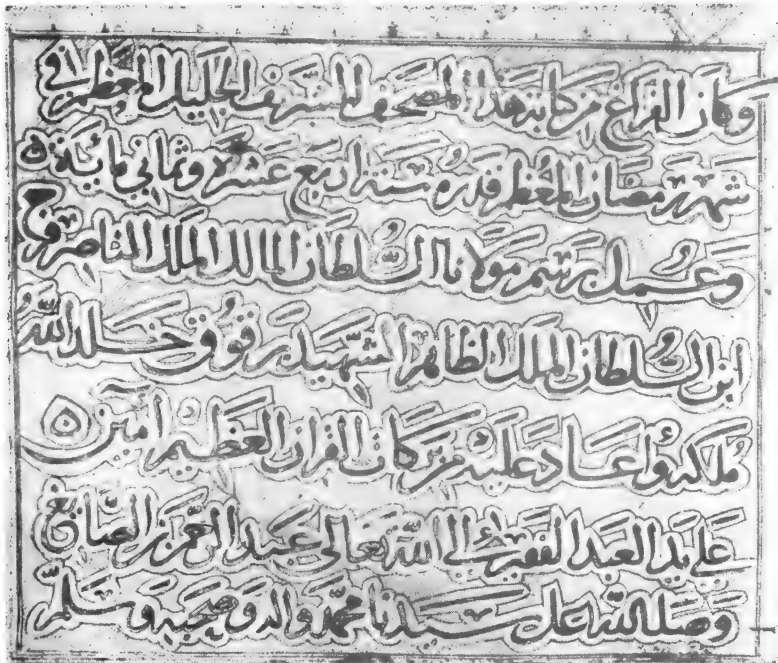 وكان الفراغ من كتابة هذا المصحف الشريف الجليل المعظم في
شهر رمضان المعظم قدره سنة اربع عشرة وثماني مائة
وعمل برسم مولانا السلطان المالك الملك الناصر فرج
ابن السلطان الملك الظاهر الشهيد برقوق خلد الله
ملكه وأعاد عليه من بركات القران العظيم امين
على يد العبد الفقير إلى الله تعالى عبد الرحمن بن الصايغ
وصلى الله على سيدنا محمد واله وصحبه وسلم